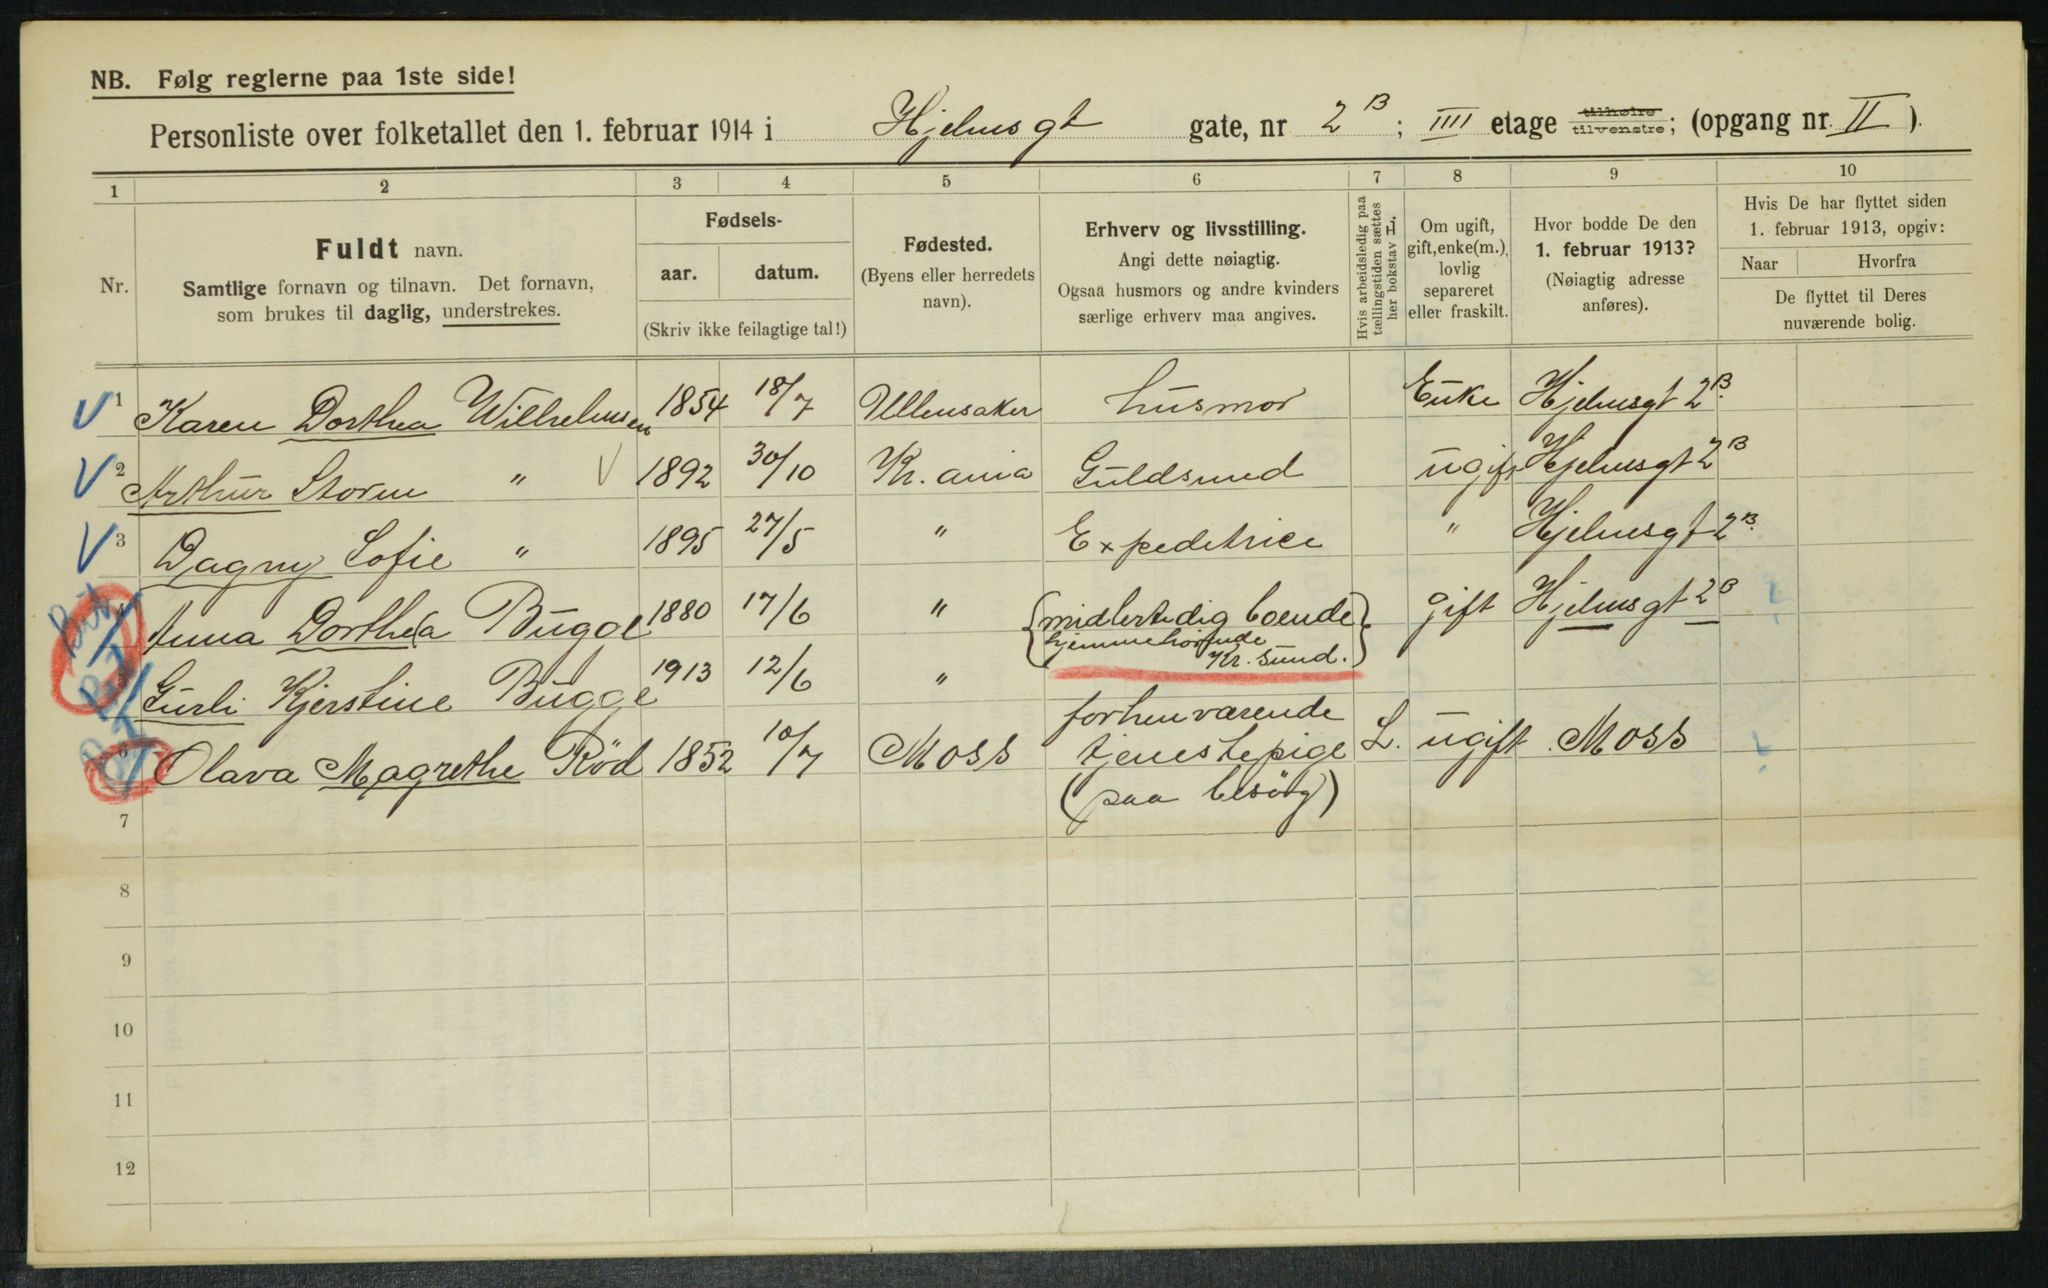 NB. Følg reglerne paa 1ste side!
Personliste over folketallet den 1. februar 1914 i Hjelmsgt gate, nr 2 B; IIII etage tilhøire tilvenstre; (opgang nr. II).
1 2 3 4 5 6 7 8 9 10
Nr. Fuldt navn. Samtlige fornavn og tilnavn. Det fornavn, som brukes til daglig, understrekes.
Fødsels- aar. datum. (Skriv ikke feilagtige tal!)
Fødested. (Byens eller herredets navn).
Erhverv og livsstilling. Angi dette nøiagtig. Ogsaa husmors og andre kvinders særlige erhverv maa angives.
Hvis arbeidsledig paa tællingstiden sættes her bokstav L.
Om ugift, gift, enke(m.), lovlig separeret eller fraskilt.
Hvor bodde De den 1. februar 1913? (Nøiagtig adresse anføres).
Hvis De har flyttet siden 1. februar 1913, opgiv: Naar Hvorfra De flyttet til Deres nuværende bolig.
V 1 Karen Dorthea Wilhelmsen 1854 18/7 Ullensaker husmor Enke Hjelmsgt 2B.
V 2 Arthur Storm " V 1892 30/10 Kr.ania Guldsmed ugift Hjelmsgt 2B
V 3 Dagny Sofie " 1895 27/5 " Expeditrice " Hjelmsgt 2B.
4 Anna Dorthea Bugge 1880 17/6 " {midlertidig boende hjemmehörende Kr. Sund.} gift Hjelmsgt 2B
Gurli Kjerstine Bugge 1913 12/6 "
6 Olava Magrethe Röd 1852 10/7 Moss forhenværende tjenestepige (paa besög) L. ugift Moss
7
8
9
10
11
12